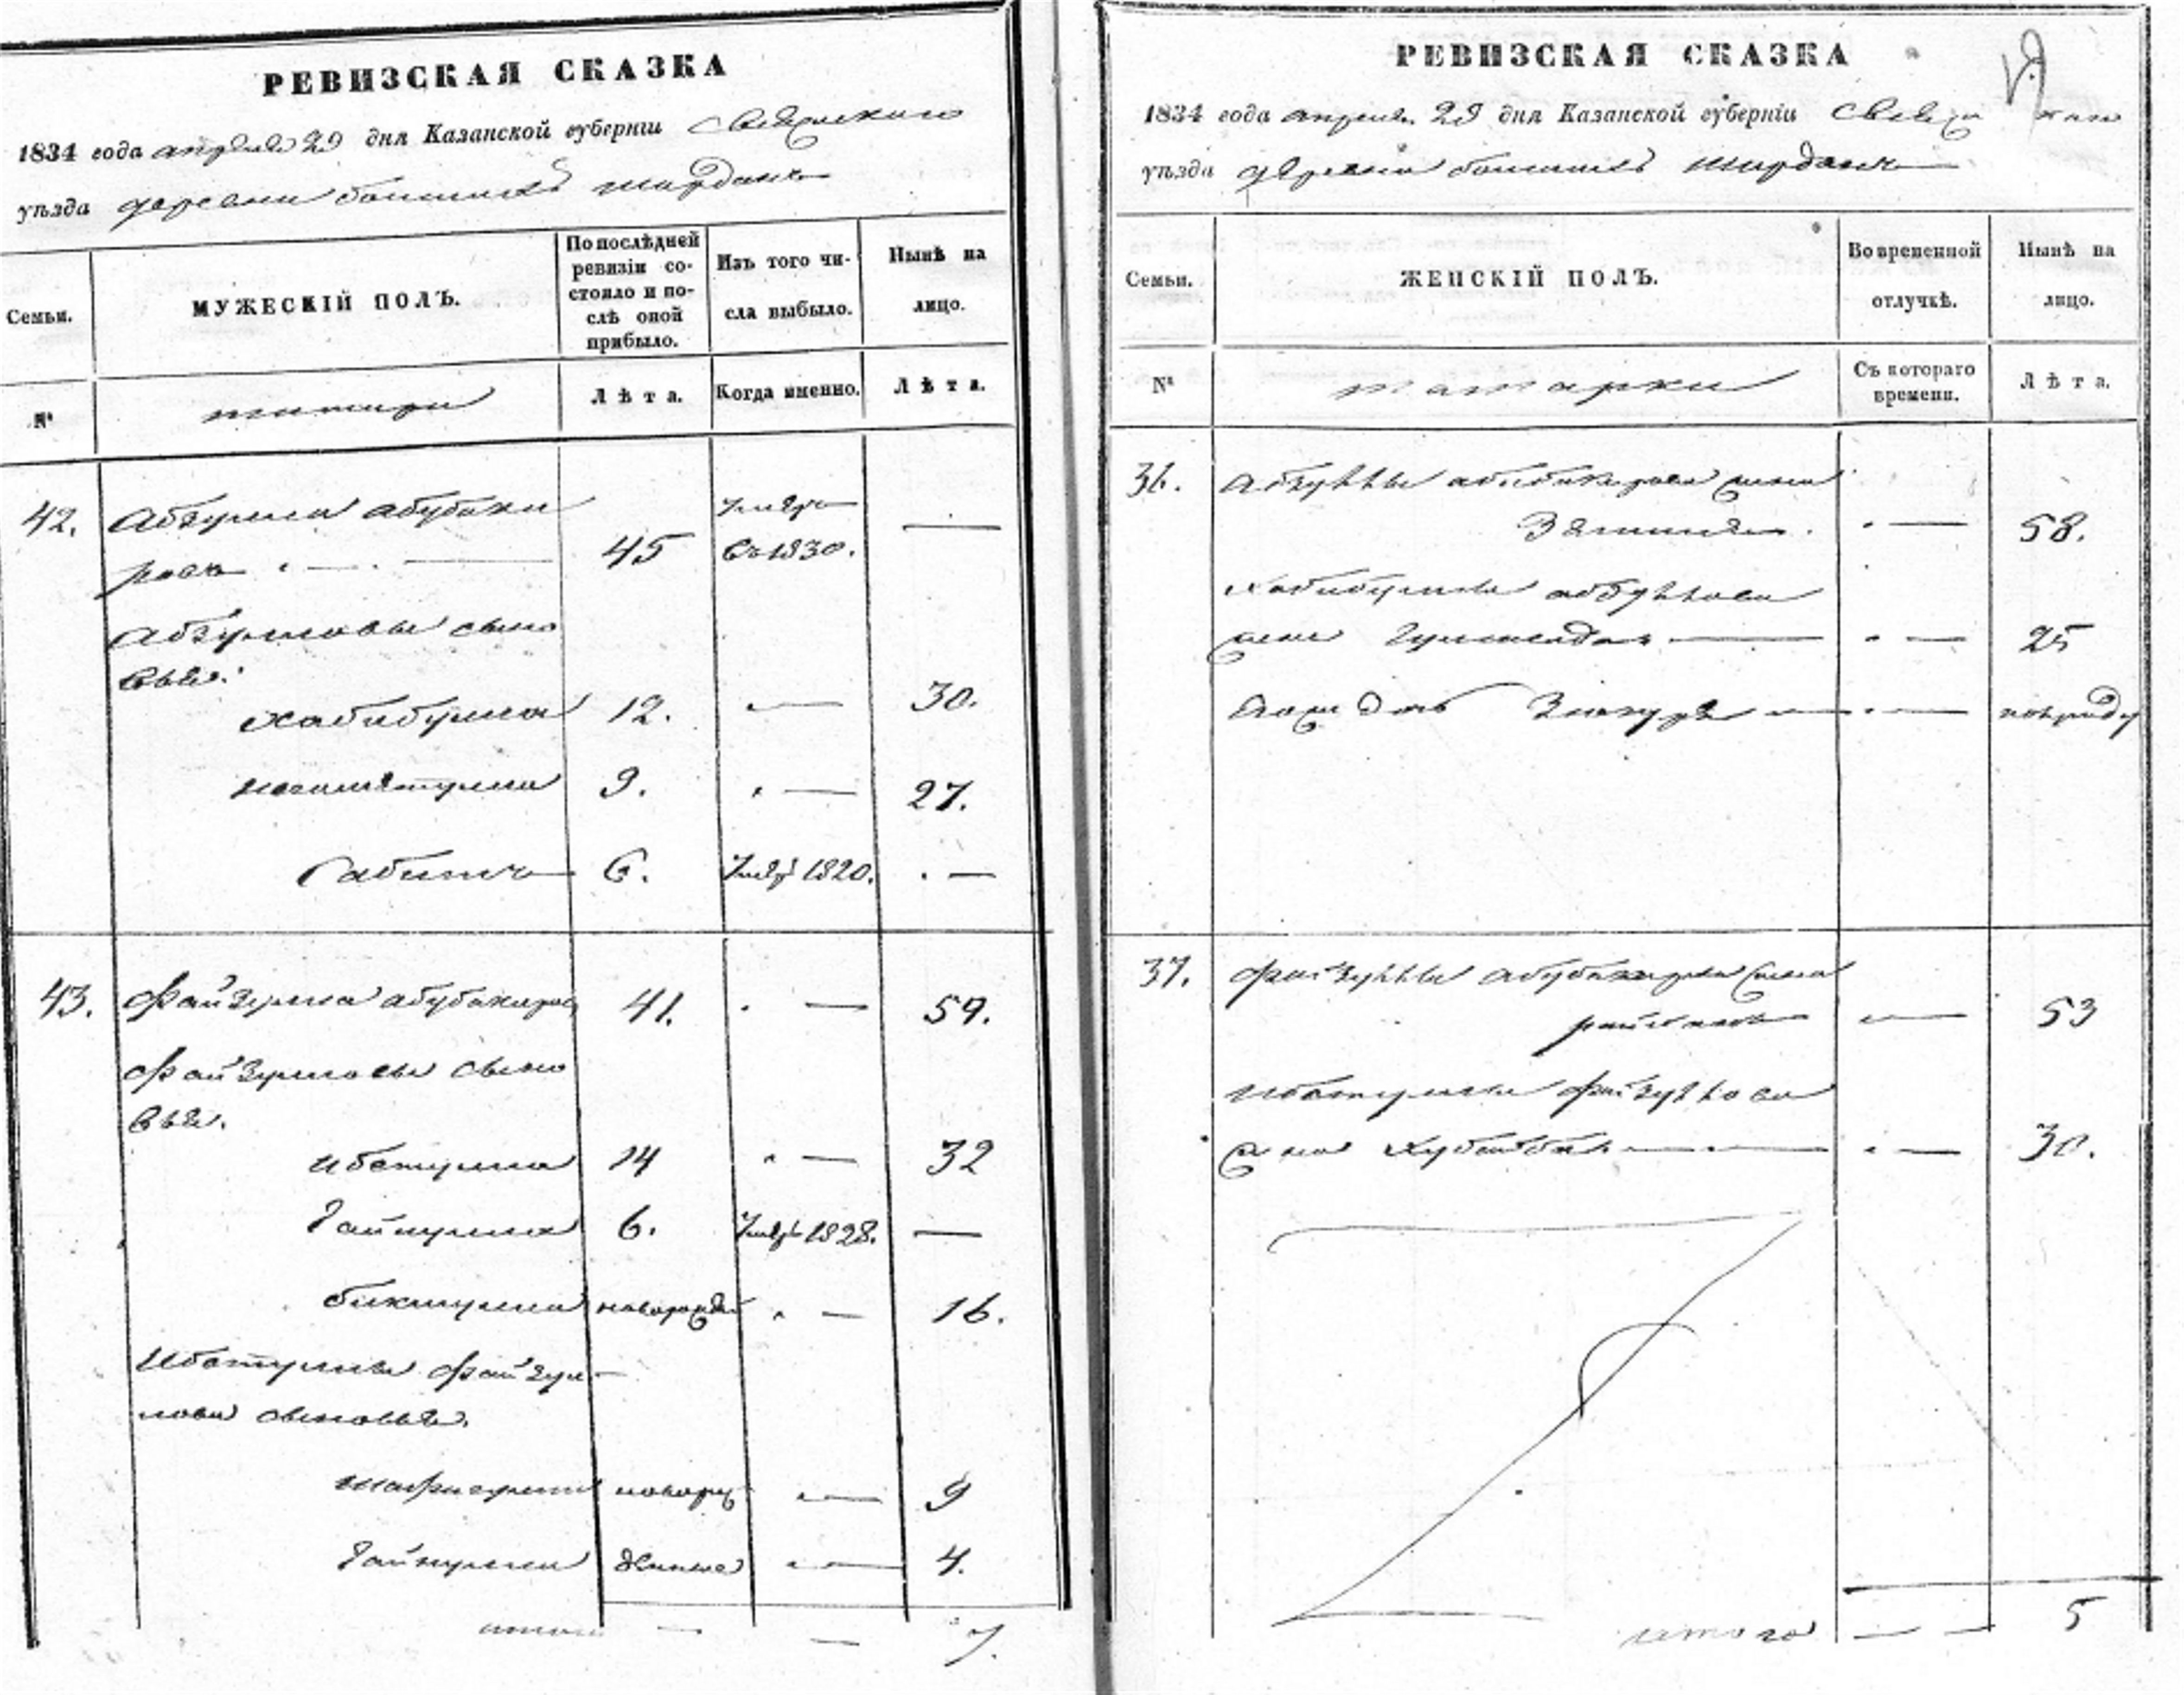 РЕВИЗСКАЯ СКАЗКА
1834 года апреля 29 дня Казанской губерніи Свіяжскаго
уѣзда деревни большихъ ширданъ
Семьи.
МУЖЕСКІЙ ПОЛЪ.
По послѣдней ревизіи состояло и послѣ оной прибыло.
Изъ того числа выбыло.
Нынѣ на лицо.
№
татары
Лѣта.
Когда именно.
Лѣта.
42. Абзулла абубаки
ровъ 45 Умеръ въ 1830. —
Абзулловы сыно
вья:
Хабибулла 12. — 30.
9. — 27.
Габитъ 6. Умеръ 1820. —
43. Файзулла абубакиров 41. — 59.
Файзулловы сыно
вья.
Ибетулла 14 — 32
Гайнулла 6. Умеръ 1828. —
биктулла новорожде — 16.
Ибетуллы Файзул-
лова сыновья.
новорож — 9
Гайнулла денные — 4.
итого — — 7.
РЕВИЗСКАЯ СКАЗКА
1834 года апреля 29 дня Казанской губерніи Свіяж
уѣзда деревни большихъ ширданъ
Семьи.
ЖЕНСКІЙ ПОЛЪ.
Во временной отлучкѣ.
Нынѣ на лицо.
№
татарки
Съ котораго времени.
Лѣта.
36. Абзуллы абубакирова жена
— 58.
Хабибуллы абзуллова
жена — 25
дочь —
37. Файзуллы абубакирова жена
— 53
Ибетуллы файзуллова
жена — 30.
итого — — 5